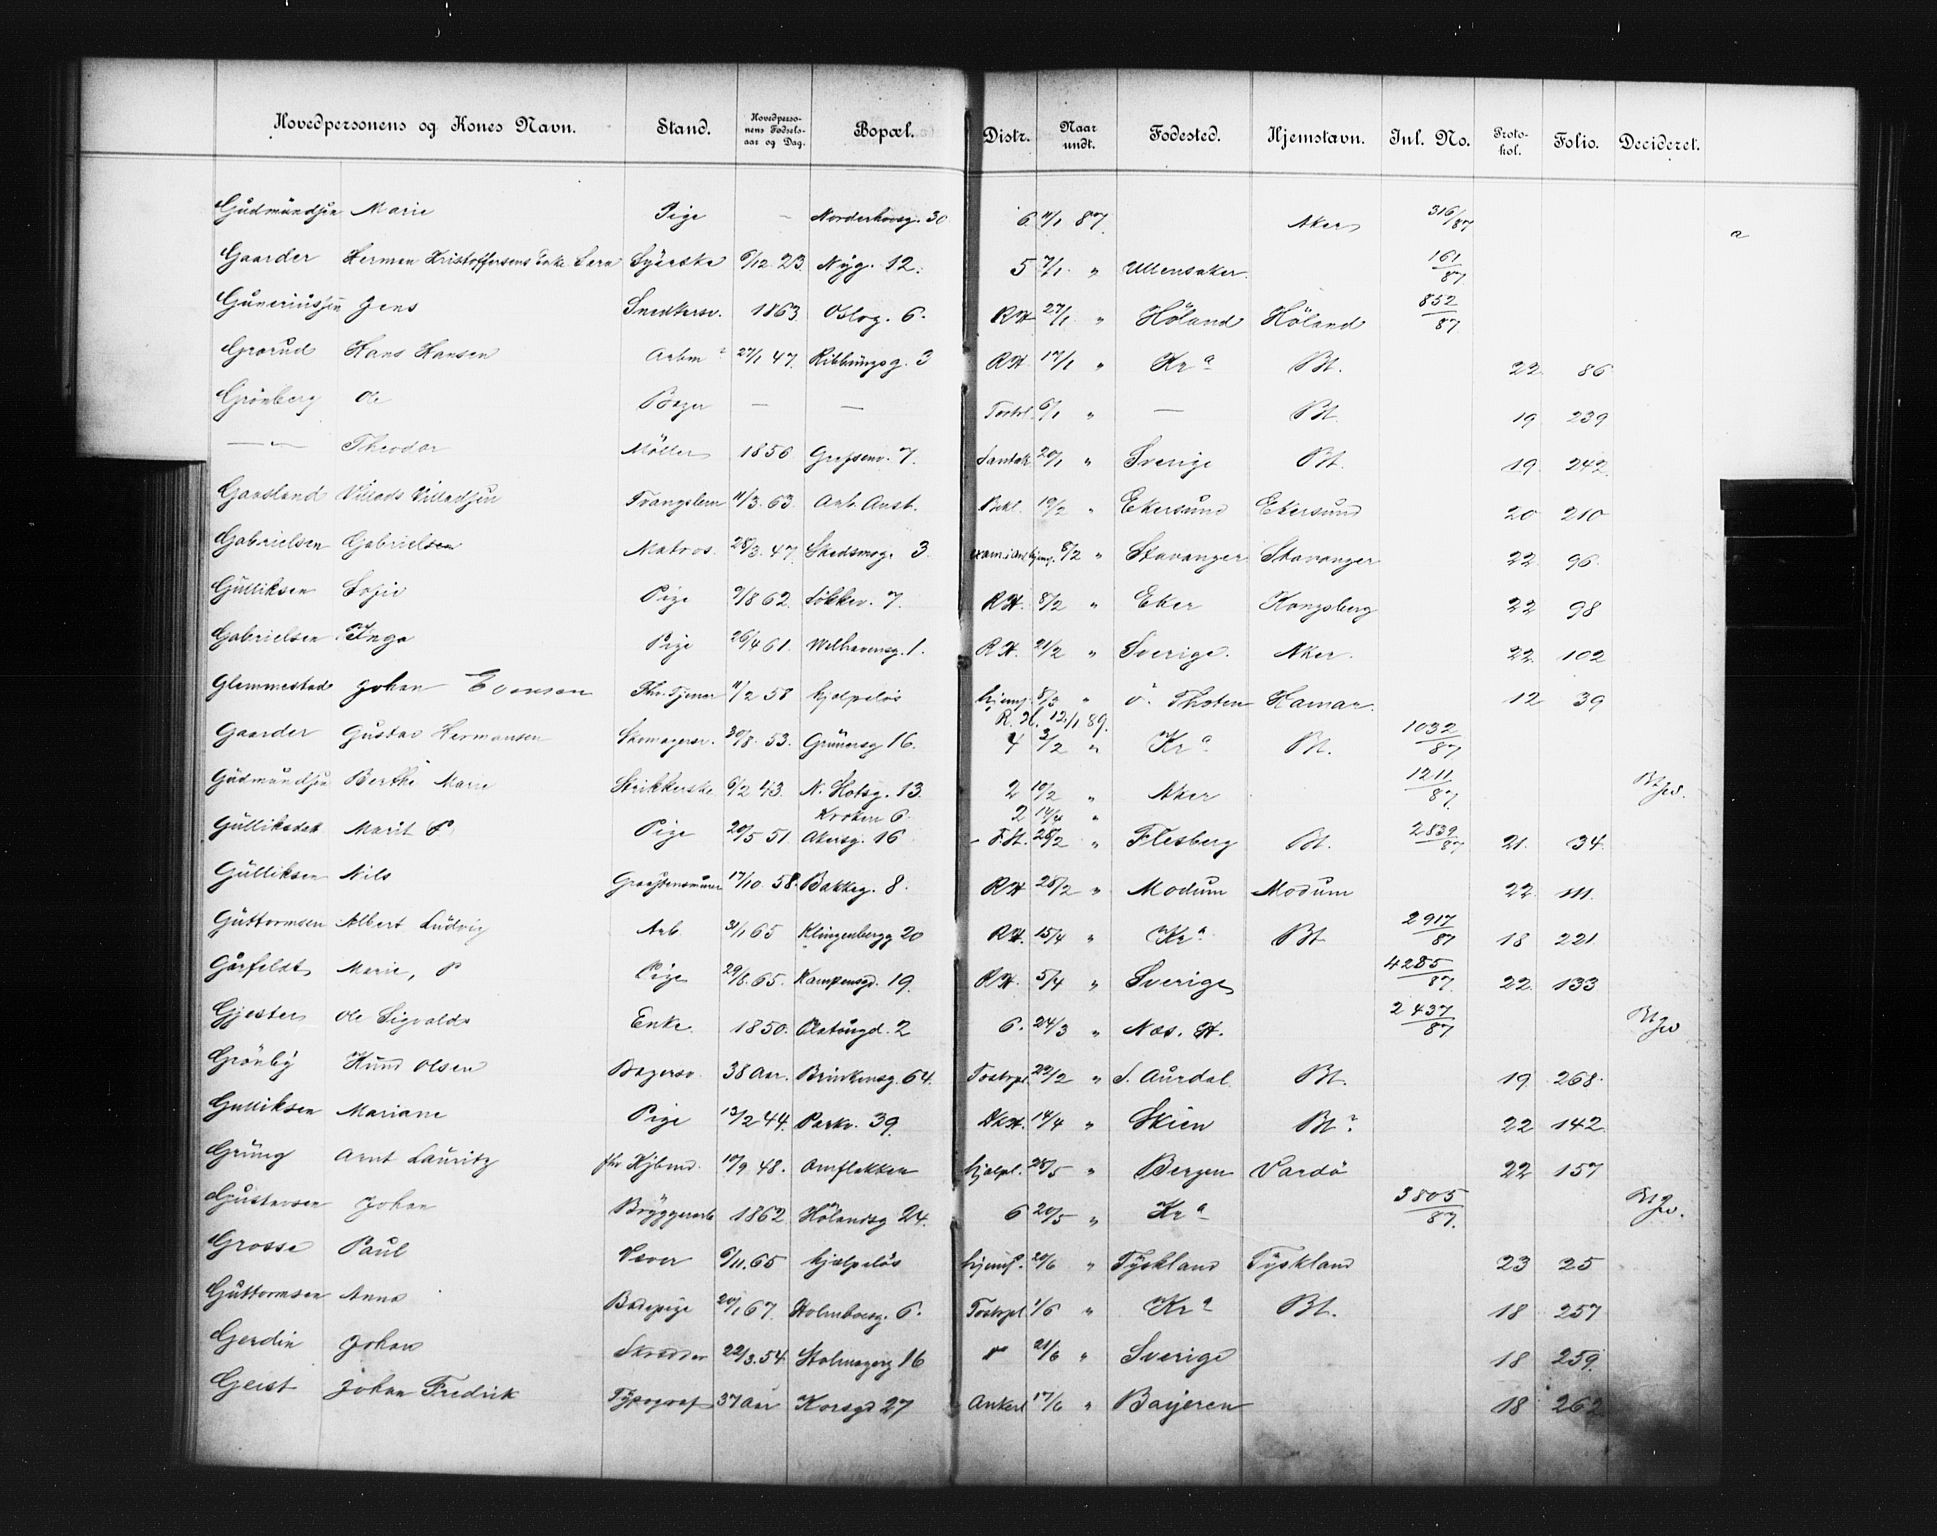 Hovedpersonens og Kones Navn. Stand. Hovedpersonens Fødselsaar og Dag. Bopæl. Distr. Naar undt. Fødested. Hjemstavn. Inl. No. Protokol. Folio. Decideret.
Gudmundsen Marie Pige — Norderhovsg. 30 6 11/1 87. Aker 316/87
Gaarder Herman Kristoffersens Enke Lara Syerske 6/12 23 Nyg. 12. 5 7/1 " Ullensaker. 161/87
Guneriussen Jens Snedkersv. 1863 Oslog. 6. RH 27/1 " Høland Høland 852/87
Grorud Hans Hansen Arbm 27/1 47. Ribbungsg. 3 RH. 17/1 " Kra Bt. 22 86
Grönberg Ole Bager — — Tostrl. 6/1 " — Bt. 19 239
— " — Theodor Möller 1856 Grefsenv. 7. 20/1 " Sverige Bt. 19 242
Gaasland Villads Villadsen Tvangslem 11/3 63. Arb. Anst. 10/2 " Ekersund Ekersund 20 210
Gabrielsen Gabrielsen Matros. 28/3 47. Skedsmog. 3. 8/2 " Stavanger Stavanger 22 96.
Gulliksen Sofie Pige 9/8 62. Løkkev. 7. RH. 8/2 " Eker Kongsberg 22 98
Gabrielsen Inga Pige 26/4 61. Welhavensg. 1. RH. 21/2 " Sverige. Aker. 22 102
Glemmestad Johan Evensen Fhv. Tjener 11/2 58 hjælpeløs hjemf. 8/3 " ö. Thoten Hamar. 12 39
R. H. 12/1 89.
Gaarder Gustav Hermansen Skomagersv. 30/8. 53. Grünersg 16. 4 3/2 " Kra Bt. 1032/87
Gudmundsen Berthe Marie Strikkerske 6/2 43. N. Slotsg. 13. 2 10/2 " Aker 1211/87
Kroken 6 2 14/4 "
Gulliksdat Marit P Pige 20/5 51. Akersg. 16 F.H. 28/2 " Flesberg Bt. 2839/87 21. 34.
Gulliksen Nils 17/10. 58. Bakkeg. 8. RH 28/2 " Modum Modum 22. 111.
Guttormsen Albert Ludvig Arb 31/1 65 Klingenbergg 20 RH. 15/4 " Kra Bt 2917/87 18 221
Garfeldt Marie, P Pige 29/8. 65. Kampensgd. 19. RH 5/4 " Sverige 4285/87. 22. 133
Gjester Ole Sigvalds Enke 1850. 2 6. 24/3 " Næs. H. 2437/87
Grönby Knud Olsen Bagersv. 38 Aar. Brinkensg. 64. Tostrpl. 22/2 " S. Aurdal. Bt. 19 268.
Gulliksen Mariane Pige 13/2 44. Parkv. 39. 14/4 " Skien Bt? 22 142.
Grung Arnt Lauritz fhv Kjbmd. 10/9 48. Omflakken hjælpl. 28/5 " Bergen Vardö 22 157
Gustavsen Johan Bryggerarb 1862. Hølandsg 24. 6 20/5 " Kra 3805/87.
Grosse Paul Væver 6/11. 65 hjælpeløs hjemf. 20/6 " Tyskland Tyskland 23 25
Guttormsen Anna Badepige 20/1 67. Holmboesg. 6. Tostrpl 1/6 " Kra Bt. 18 257
Gerdin Johan Skrædder 22/3. 54. Holmsgerg 16 " 21/6 " Sverige 18 259.
Geist Johan Fredrik Typograf 37 Aar Korsgd 27 Ankerl 17/6 " Bayeren 18 262